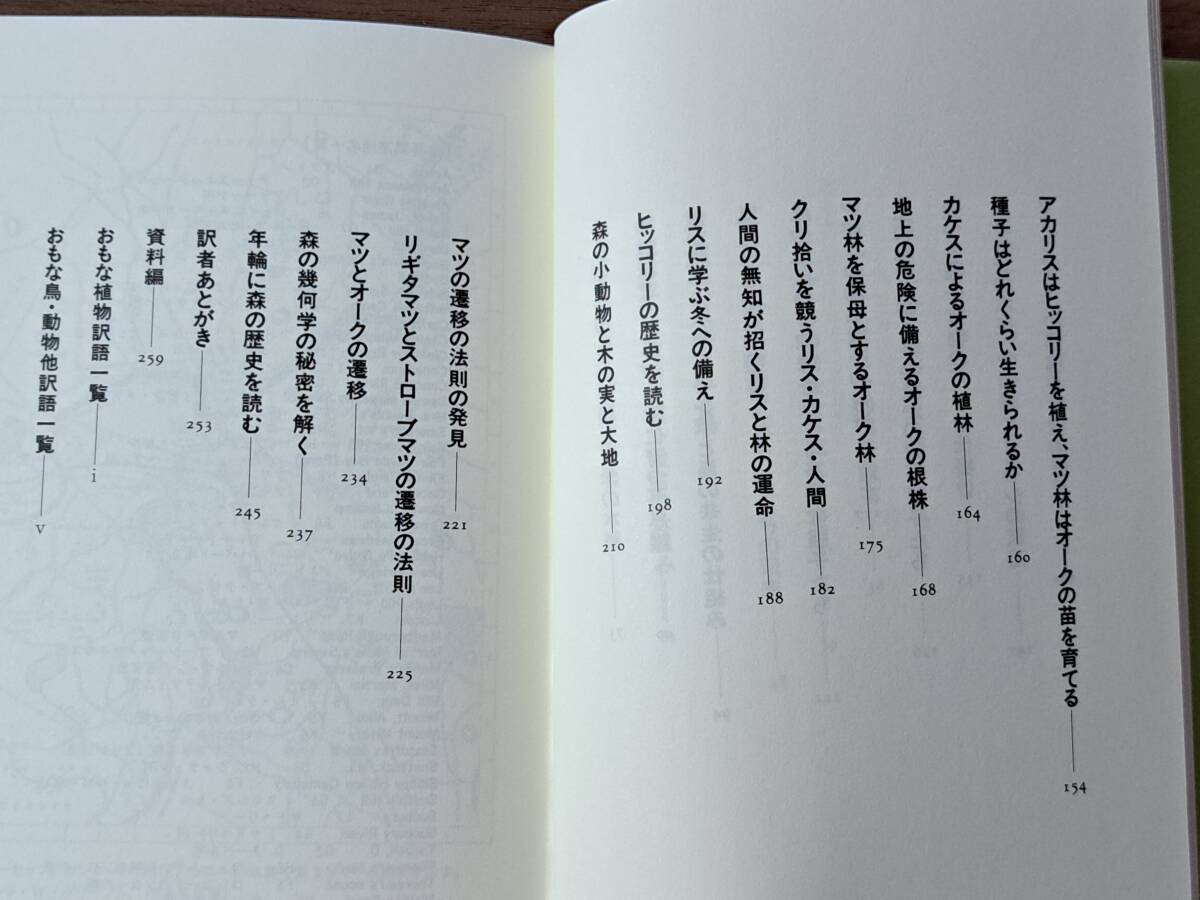 アカリスはヒッコリーを植え、マツ林はオークの苗を育てる――154
種子はどれくらい生きられるか――160
カケスによるオークの植林――164
地上の危険に備えるオークの根株――168
マツ林を保母とするオーク林――175
クリ拾いを競うリス・カケス・人間――182
人間の無知が招くリスと林の運命――188
リスに学ぶ冬への備え――192
ヒッコリーの歴史を読む――198
森の小動物と木の実と大地――210
マツの遷移の法則の発見――221
リギタマツとストローブマツの遷移の法則――225
マツとオークの遷移――234
森の幾何学の秘密を解く――237
年輪に森の歴史を読む――245
訳者あとがき――253
資料編――259
おもな植物訳語一覧――i
おもな鳥・動物他訳語一覧――v